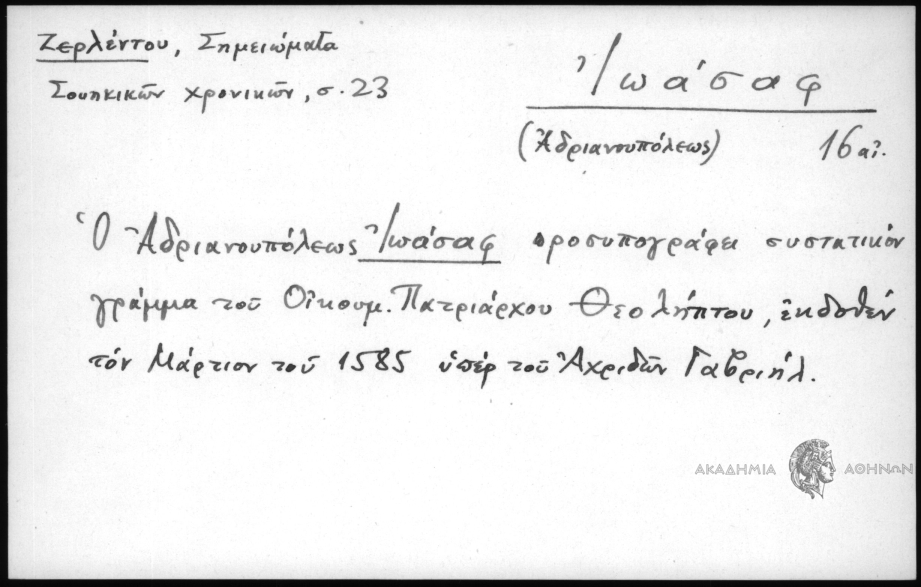 Ζερλέντου, Σημειώματα
Σουηκικῶν χρονικῶν, σ. 23
Ἰωάσαφ
(Ἀδριανουπόλεως) 16 αἰ.
Ὁ Ἀδριανουπόλεως Ἰωάσαφ προσυπογράφει συστατικόν
γράμμα τοῦ Οἰκουμ. Πατριάρχου Θεολήπτου, ἐκδοθέν
τόν Μάρτιον τοῦ 1585 ὑπέρ τοῦ Ἀχριδῶν Γαβριήλ.
ΑΚΑΔΗΜΙΑ ΑΘΗΝΩΝ